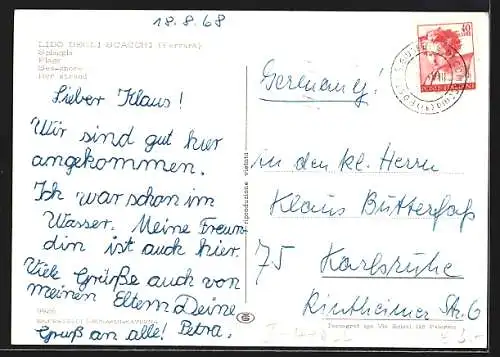 18.8.68
LIDO DEGLI SCACCHI (Ferrara)
Spiaggia
Plage
Sea-shore
Der Strand
Lieber Klaus!
Wir sind gut hier
angekommen.
Ich war schon im
Wasser. Meine Freun-
din ist auch hier.
Viele Grüße auch von
meinen Eltern Deine
Gruß an alle! Petra.
riproduzione vietata
40
Germany!
An den kl. Herrn
Klaus Butterfaß
75 Karlsruhe
Rintheimer Str. 6